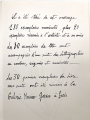 Il a été tiré de cet ouvrage
exemplaires numérotés, plus
exemplaires réservés à l'artiste et
exemplaires de tête sont
accompagnés d'une suite de lithographies
en couleurs, signées et numérotées
Les premiers exemplaires du livre
ont été mis en vente à la
Galerie Maurice Garnier à Paris